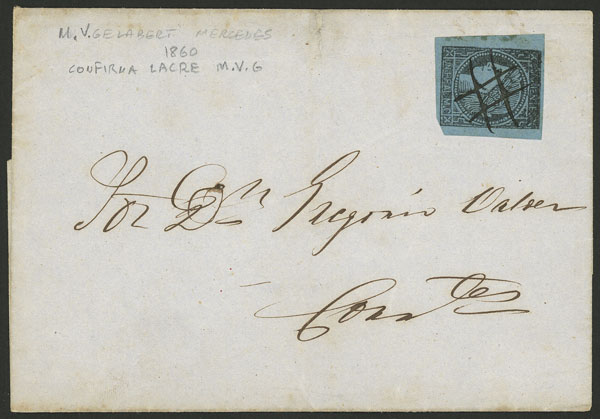 M.V. GELABERT MERCEDES
1860
CONFIRMA LACRE M.V.G
Sor Dn Gregorio Valder
Corrtes